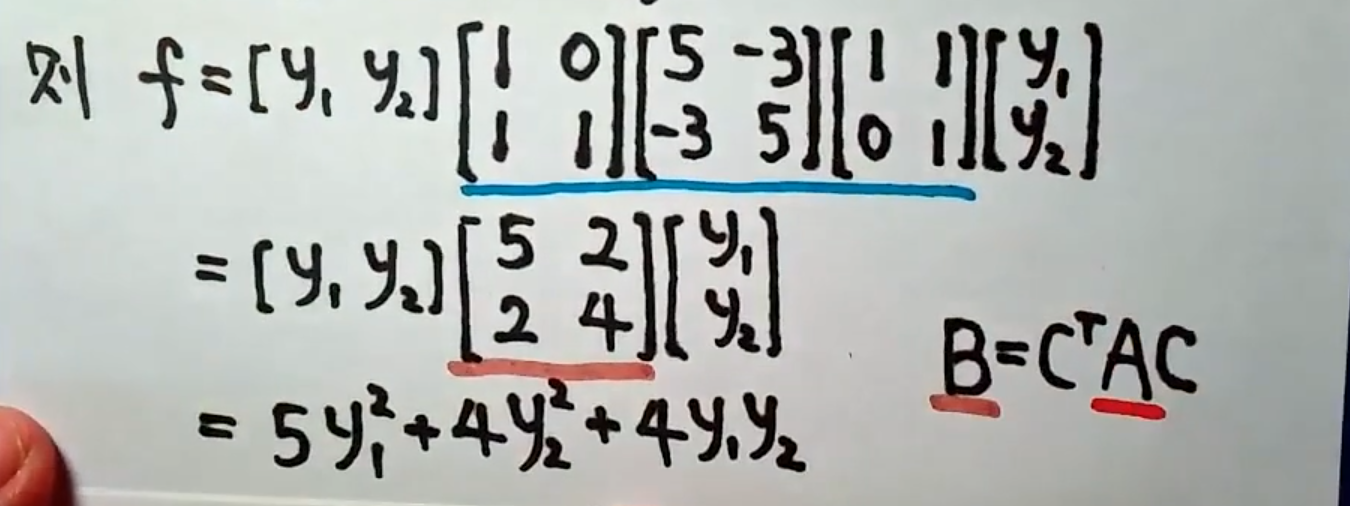 则 f=[y₁ y₂][1 0; 1 1][5 -3; -3 5][1 1; 0 1][y₁; y₂]
=[y₁ y₂][5 2; 2 4][y₁; y₂]
B=CᵀAC
=5y₁²+4y₂²+4y₁y₂